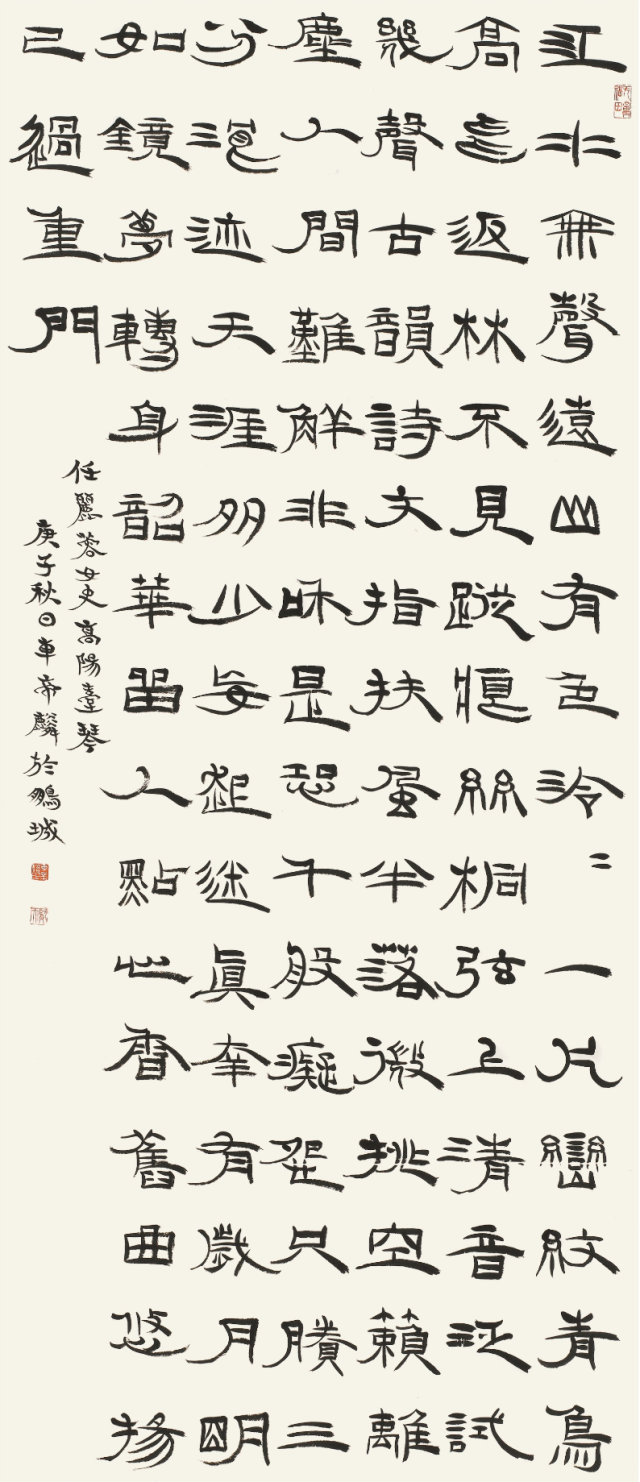 江水無聲遠山有色泠〻一片巒紋青鳥
高返林不見蹤絲桐弦上清音泛試
幾聲古韻詩文指扶風半落微挑空籟離
塵人間難解非和是恐千般癡怨只賸三
分泡迹天涯多少每起迷真幸有歲月明
如鏡夢轉身韶華留人點心香舊曲悠揚
已過重門
任麗蓉女史高陽臺琴
庚子秋日車帝麟於鵬城